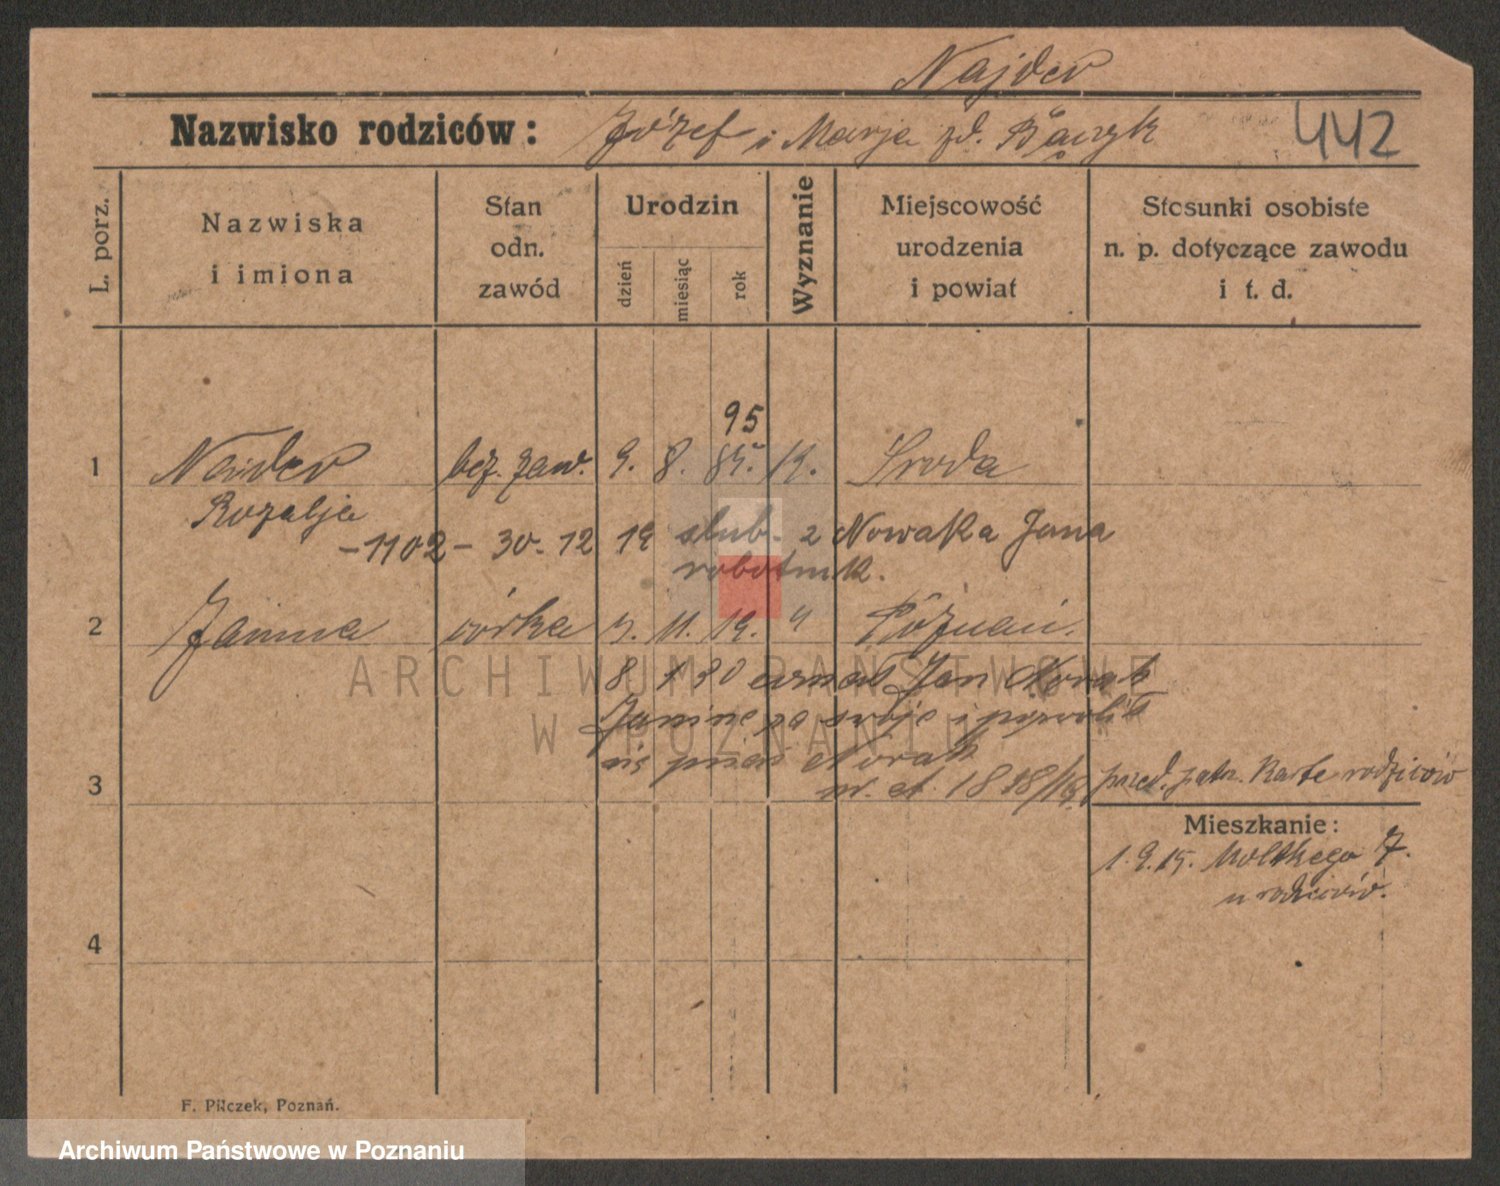 Najder
Nazwisko rodziców: Józef i Marja zd. Bączyk 442
L. porz.
Nazwiska i imiona
Stan odn. zawód
Urodzin
dzień miesiąc rok
Wyznanie
Miejscowość urodzenia i powiat
Stosunki osobiste n. p. dotyczące zawodu i t. d.
95
1 Najder bez. zaw. 9. 8. 85. Sroda
Rozalja
-1102- 30. 12 19 slub. z Nowaka Jana
robotnik.
2 Janina córka 11. 19. " Poznań.
8 30 uznał Jan Nowak
Janinę za swoje i pozwolił
Nowak
3 przed. patrz. Karte rodziców
Mieszkanie:
1. 9. 15. Moltkego 7.
u rodziców.
4
F. Pilczek, Poznań.
ARCHIWUM PAŃSTWOWE
W POZNANIU
Archiwum Państwowe w Poznaniu